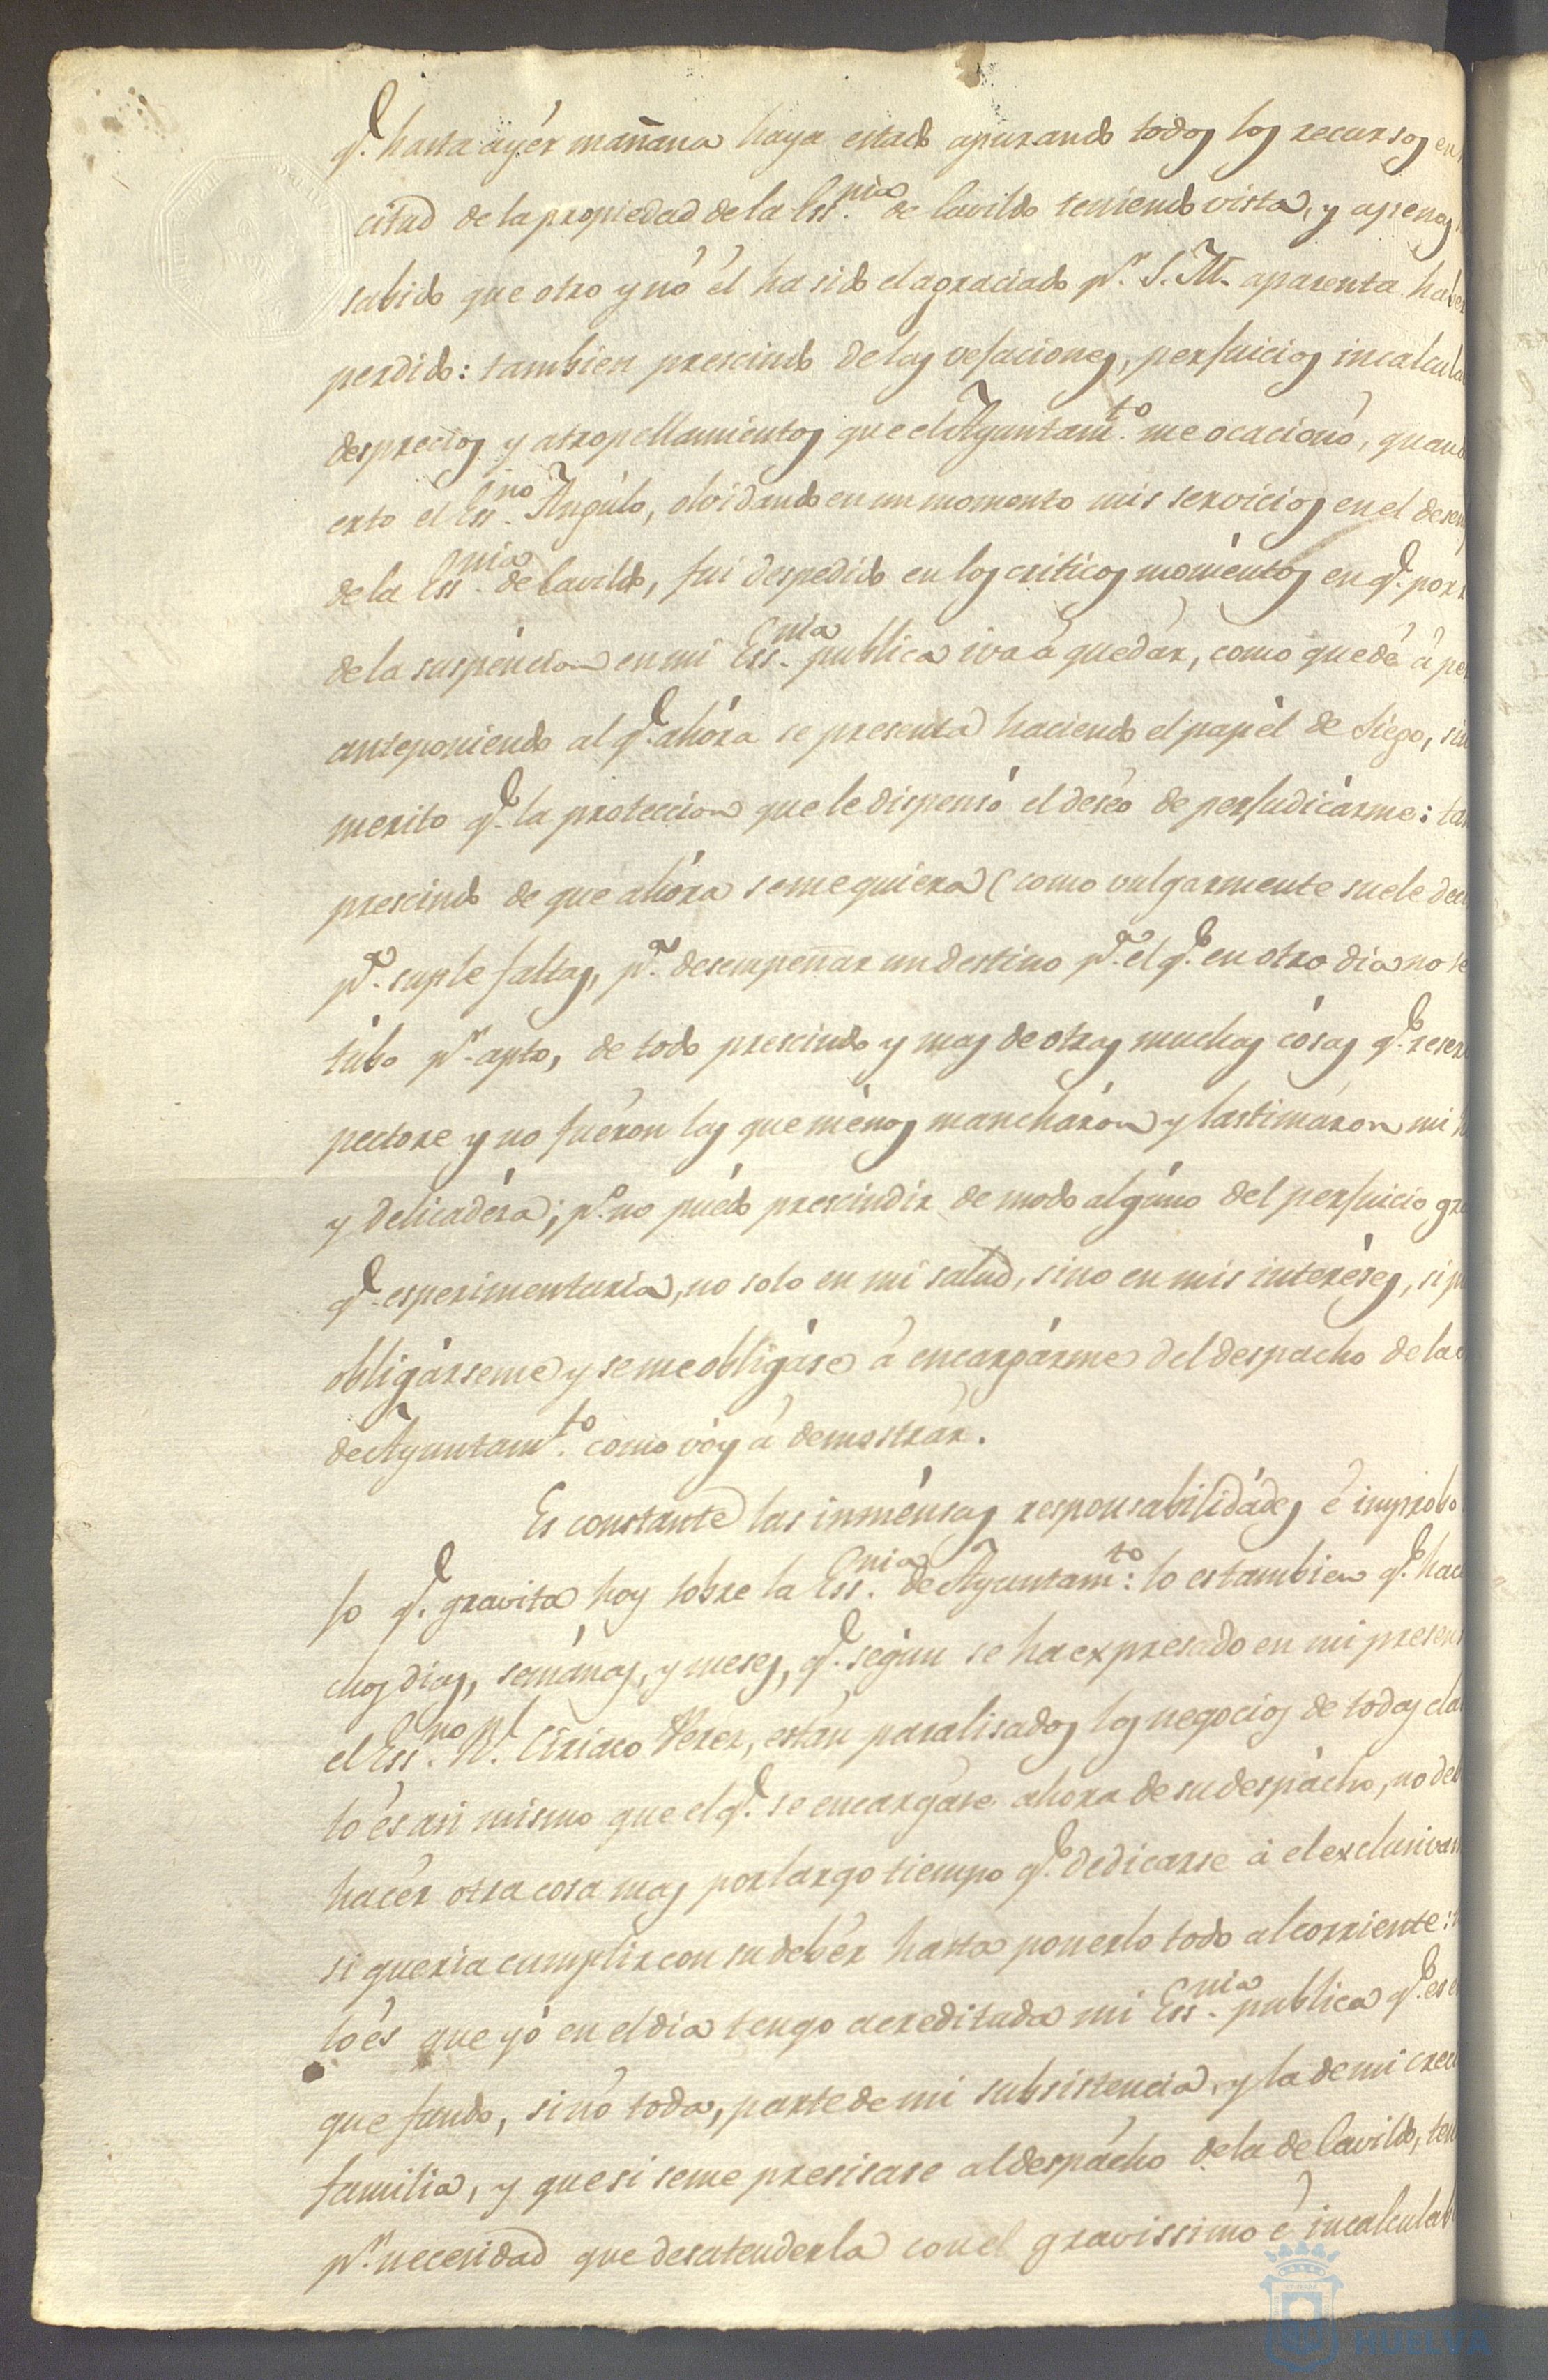 q.e hasta ayér mañana haya estado apurando todos los recursos en
citud de la propiedad de la Ess.nia de Cavildo teniendo vista, y apenas
sabido que otro y nó él ha sido el agraciado p.r S. M. aparenta haber
perdido: tambien prescindo de las vejaciones, perjuicios incalcula
desprecios y atropellamientos que el Ayuntam.to me ocacionó, quand
erto el Ess.no Angúlo, olvidando en un momento mis servicios en el desem
de la Ess.nia de Cavildo, fui despedido en los criticos moméntos en q.e por
de la suspéncion en mi Ess.nia publica iva á quedár, como quedé á pe
anteponiendo al q.e ahóra se presenta haciendo el papél de Siégo, sin
merito q.e la proteccion que le dispensó el deséo de perjudicárme: tam
prescindo de que ahóra se me quiera (como vulgarmente suele deci
p.a suple faltas, p.a desempeñar un destino p.a el q.e en otro dia no se
túbo p.r apto, de todo prescindo y mas de otras muchas cósas q.e reser
pectore y no fuéron las que ménos mancháron y lastimáron mi
y delicadésa; p.o no puédo prescindir de modo algúno del perjuicio gra
q.e esperimentaria, no solo en mi salud, sino en mis interéses, si p
obligárseme y se me obligáse á encargárme del despacho de la
de Ayuntam.to como vóy á demostrár.
Es constante las inménsas responsabilidádes é improbo
jo q.e gravita hoy sobre la Ess.nia de Ayuntam.to: lo es tambien q.e hac
chos dias, semánas, y meses, q.e segun se ha expresado en mi presen
el Ess.no R.l Ciriaco Perez, están paralisados los negocios de todas cla
to és asi mismo que el q.e se encargáse ahora de su despácho, no deb
hacér otra cosa mas por largo tiempo q.e dedicarse á el exclusivam
si queria cumplir con su debér hasta ponerlo todo al corriente:
to és que yó en el dia tengo acreditada mi Ess.nia publica q.e es
que fundo, sinó toda, parte de mi subsistencia, y la de mi creci
familia, y que si se me presisase al despácho de la de Cavildo, ten
p.r necesidad que desatenderla con el gravissimo é incalculab
HUELVA